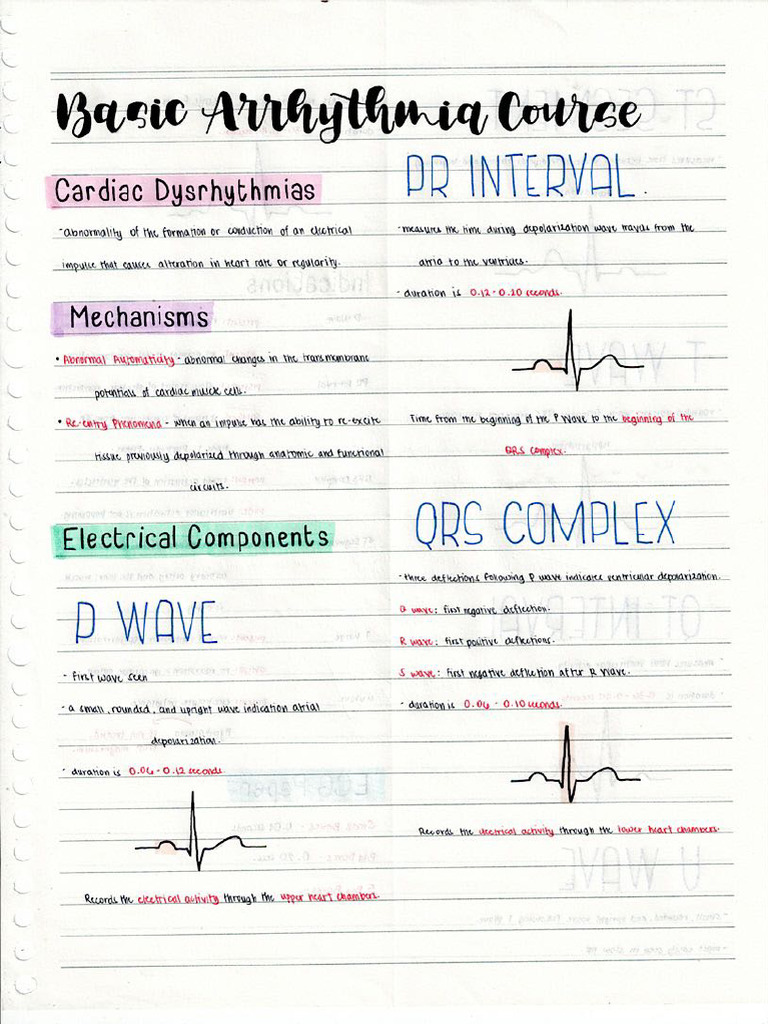 Basic Arrhythmia Course
Cardiac Dysrhythmias
- abnormality of the formation or conduction of an electrical
impulse that causes alteration in heart rate or regularity.
Mechanisms
• Abnormal Automaticity - abnormal changes in the transmembrane
potentials of cardiac muscle cells.
• Re-entry Phenomena - when an impulse has the ability to re-excite
tissue previously depolarized through anatomic and functional
circuits.
Electrical Components
P WAVE
- First wave seen
- a small, rounded, and upright wave indication atrial
depolarization.
- duration is 0.06 - 0.12 seconds.
Records the electrical activity through the upper heart chambers.
PR INTERVAL.
- measures the time during depolarization wave travels from the
atria to the ventricles.
- duration is 0.12 - 0.20 seconds.
Time from the beginning of the P Wave to the beginning of the
QRS Complex.
QRS COMPLEX
- three deflections following P wave indicates ventricular depolarization.
Q wave: first negative deflection.
R wave: first positive deflections.
S wave: First negative deflection after R wave.
- duration is 0.06 - 0.10 seconds.
Records the electrical activity through the lower heart chambers.